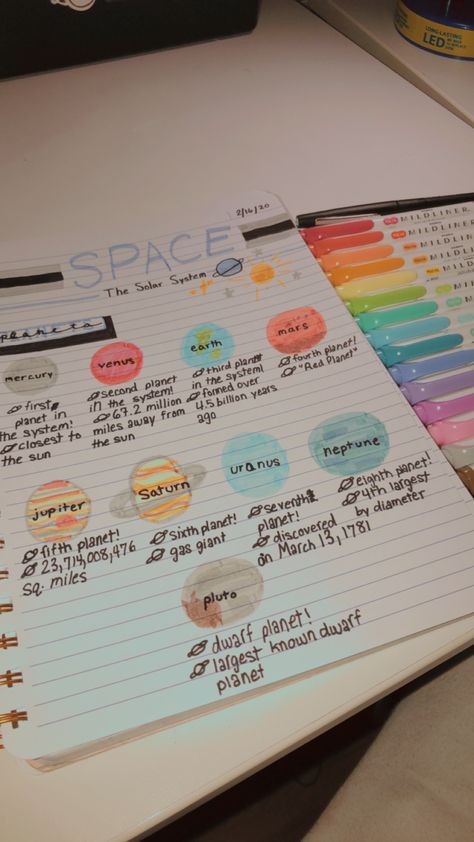 LONG-LASTING
LED
2/16/20
SPACE
The Solar System
planets
mercury
first
planet in
the system!
closest to
the sun
venus
second planet
in the system!
67.2 million
miles away from
the sun
earth
third planet
in the system!
fomed over
4.5 billion years
ago
mars
fourth planet!
"Red Planet"
jupiter
fifth planet!
23,713,008,476
sq. miles
saturn
sixth planet!
gas giant
uranus
seventh
planet!
discovered
on March 13, 1781
neptune
eighth planet!
4th largest
by diameter
pluto
dwarf planet!
largest known dwarf
planet
MILDLINER
MILDLINER
MILDLINER
MILDLINER
MILDLINER